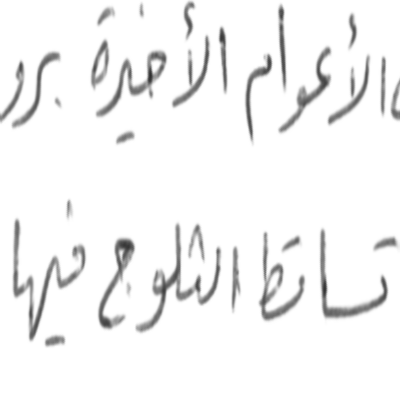 الأعوام الأخيرة برو
تساقط الثلوج فيها